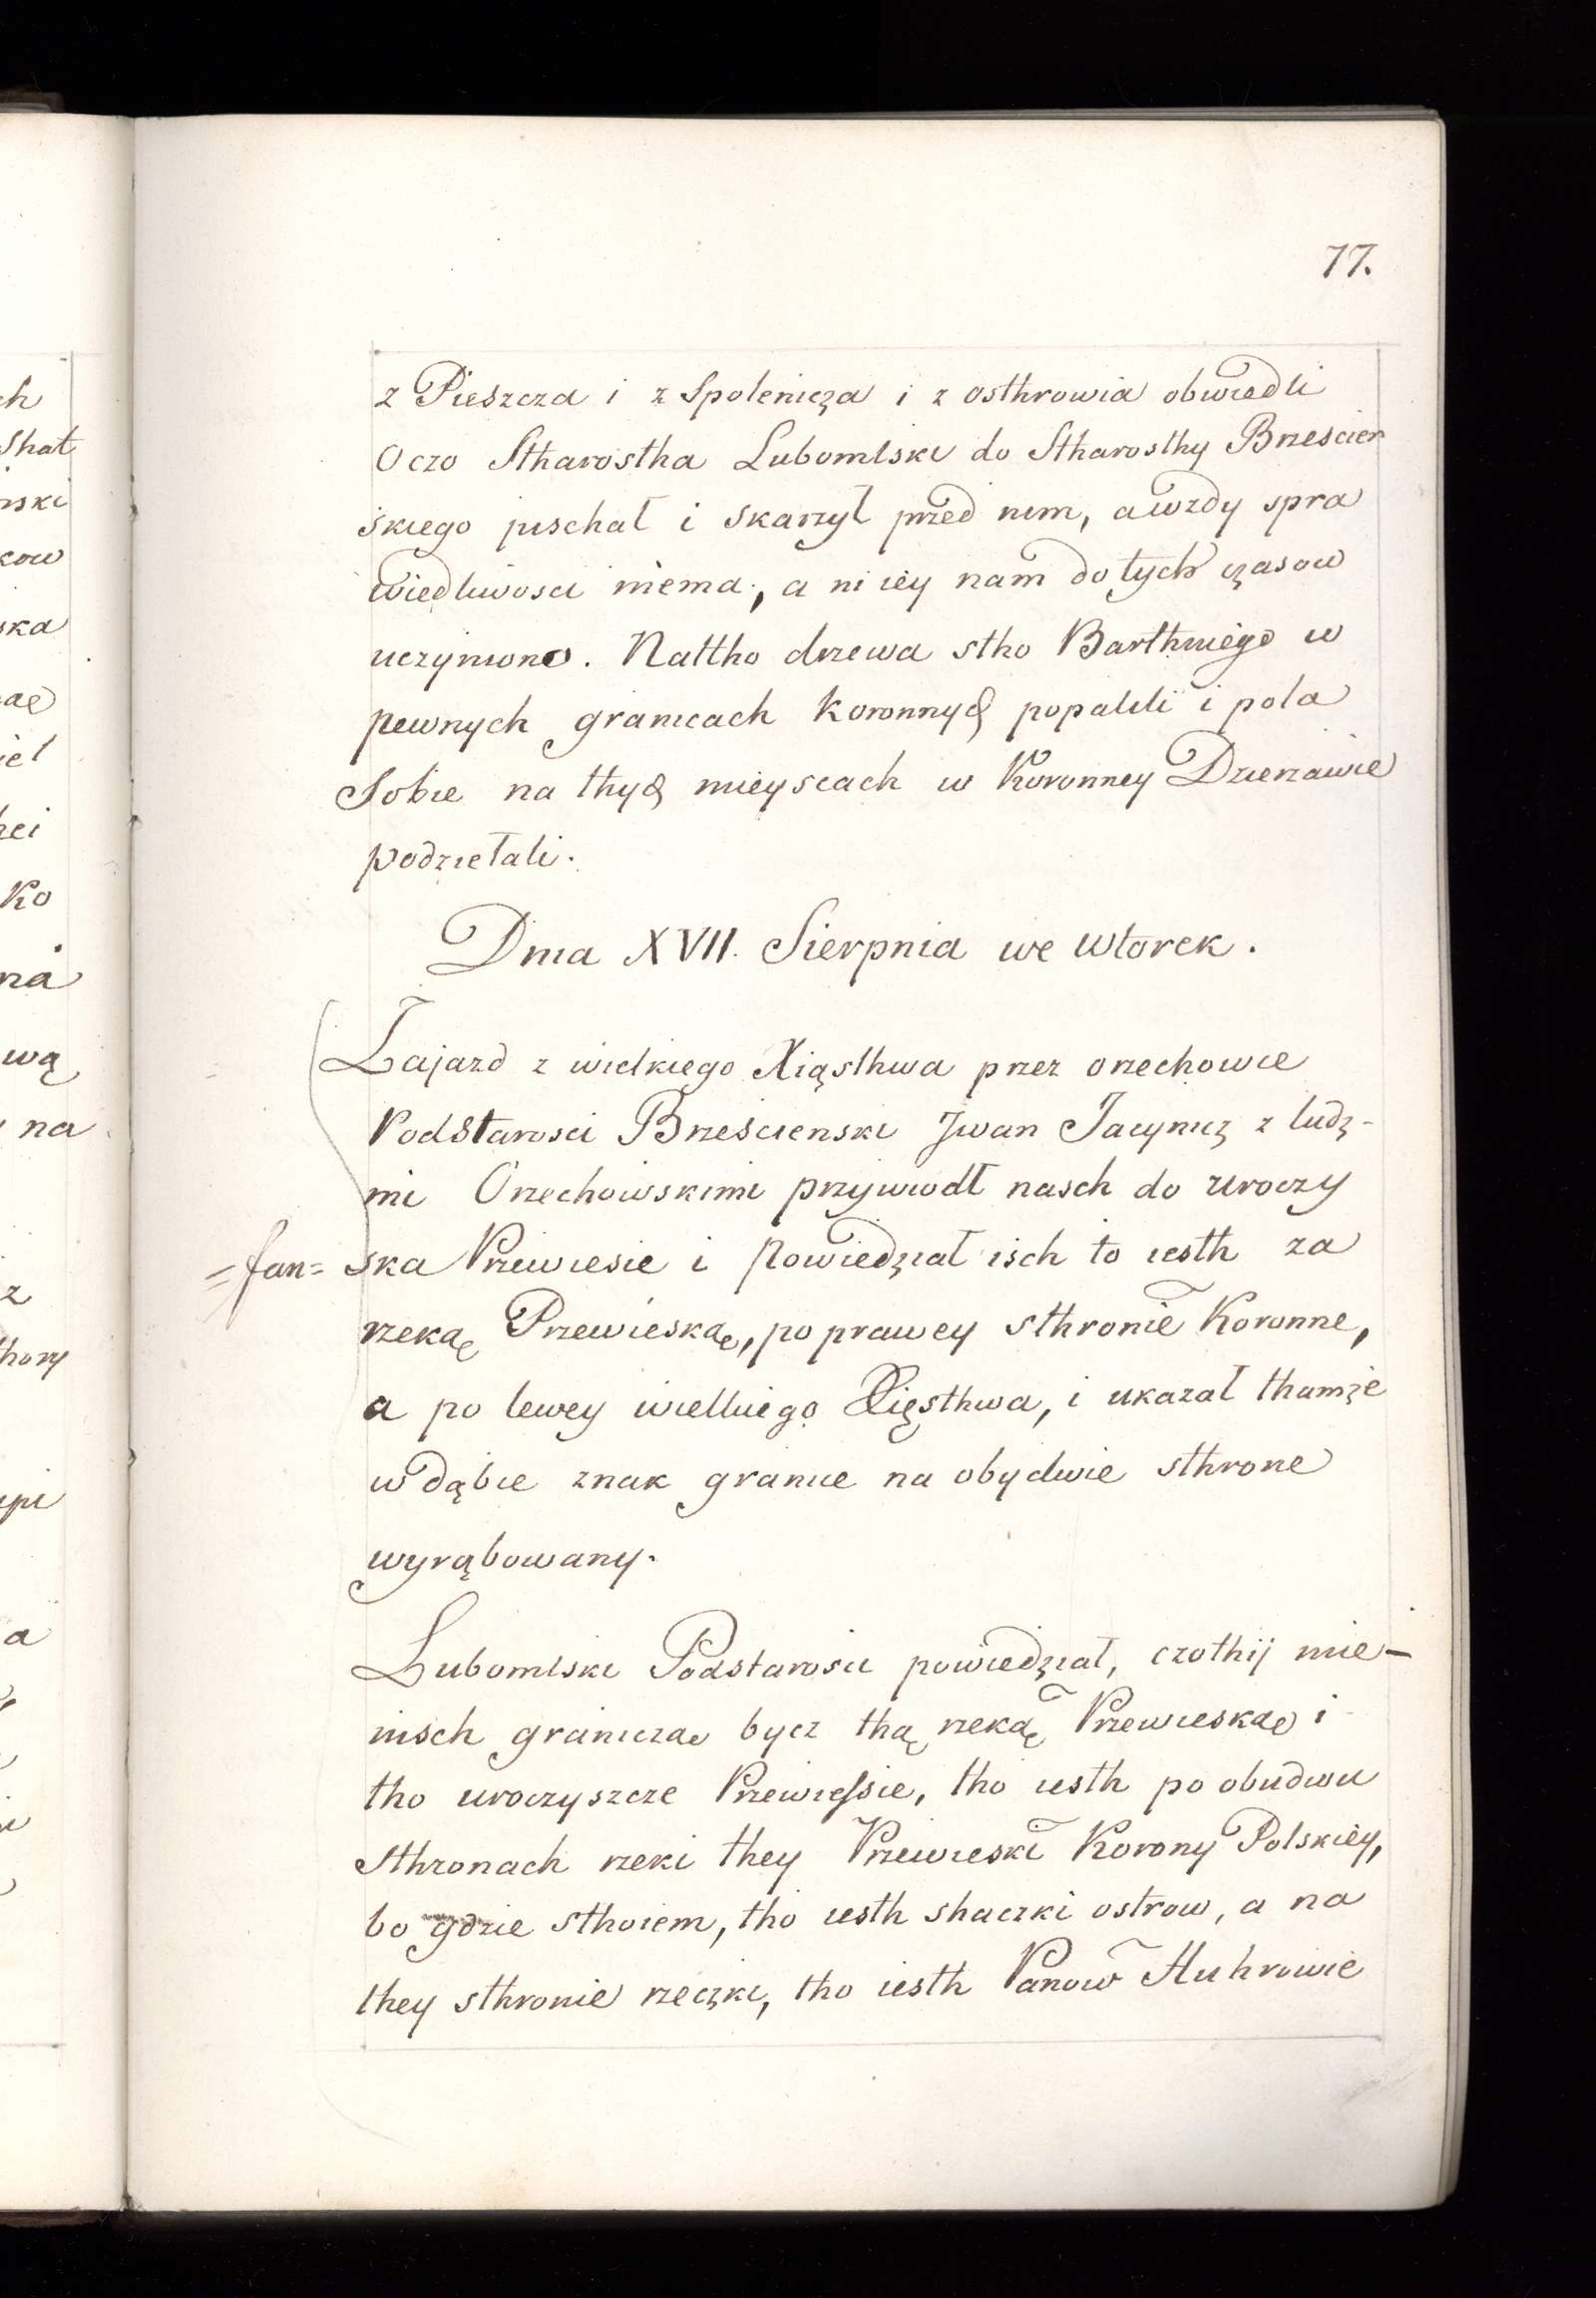 77.
z Pieszcza i z Spolenicza i z osthrowia obwiedli
Oczo Stharostha Lubomlski do Stharosthy Brzescien
skiego pischał i skarzył przed nim, a wzdy spra
wiedliwosci niema, a ni iey nam do tych czasow
uczyniono. Nattho drzewa stho Barthniego w
pewnych granicach koronnych popalili i pola
Sobie na thych mieyscach w Koronney Dzierzawie
podziełali.
Dnia XVII. Sierpnia we wtorek.
Zajazd z wielkiego Xiąsthwa przez orzechowie
Podstarosci Brzescienski Jwan Jacynicz z ludz-
mi Orzechowskimi przywiodł nasch do uroczy
=fan= ska Przewiesie i Powiedział isch to iesth za
rzeką Przewieską, po prawey sthronie Koronne,
a po lewey wielkiego Xięsthwa, i ukazał thamże
w dąbie znak granice na obydwie sthrone
wyrąbowany.
Lubomlski Podstarosci powiedział, czothij mie-
nisch graniczą bycz thą rzeką Przewieską i
tho uroczyszcze Przewiessie, tho iesth po obudwu
Sthronach rzeki they Przewieski Korony Polskiey,
bo gdzie sthoiem, tho iesth shaczki ostrow, a na
they sthronie rzeczki, tho iesth Panow Huhrowie
ch
Shat
nski
kow
ska
ae
iel
Ko
na
wą
na
z
thory
a